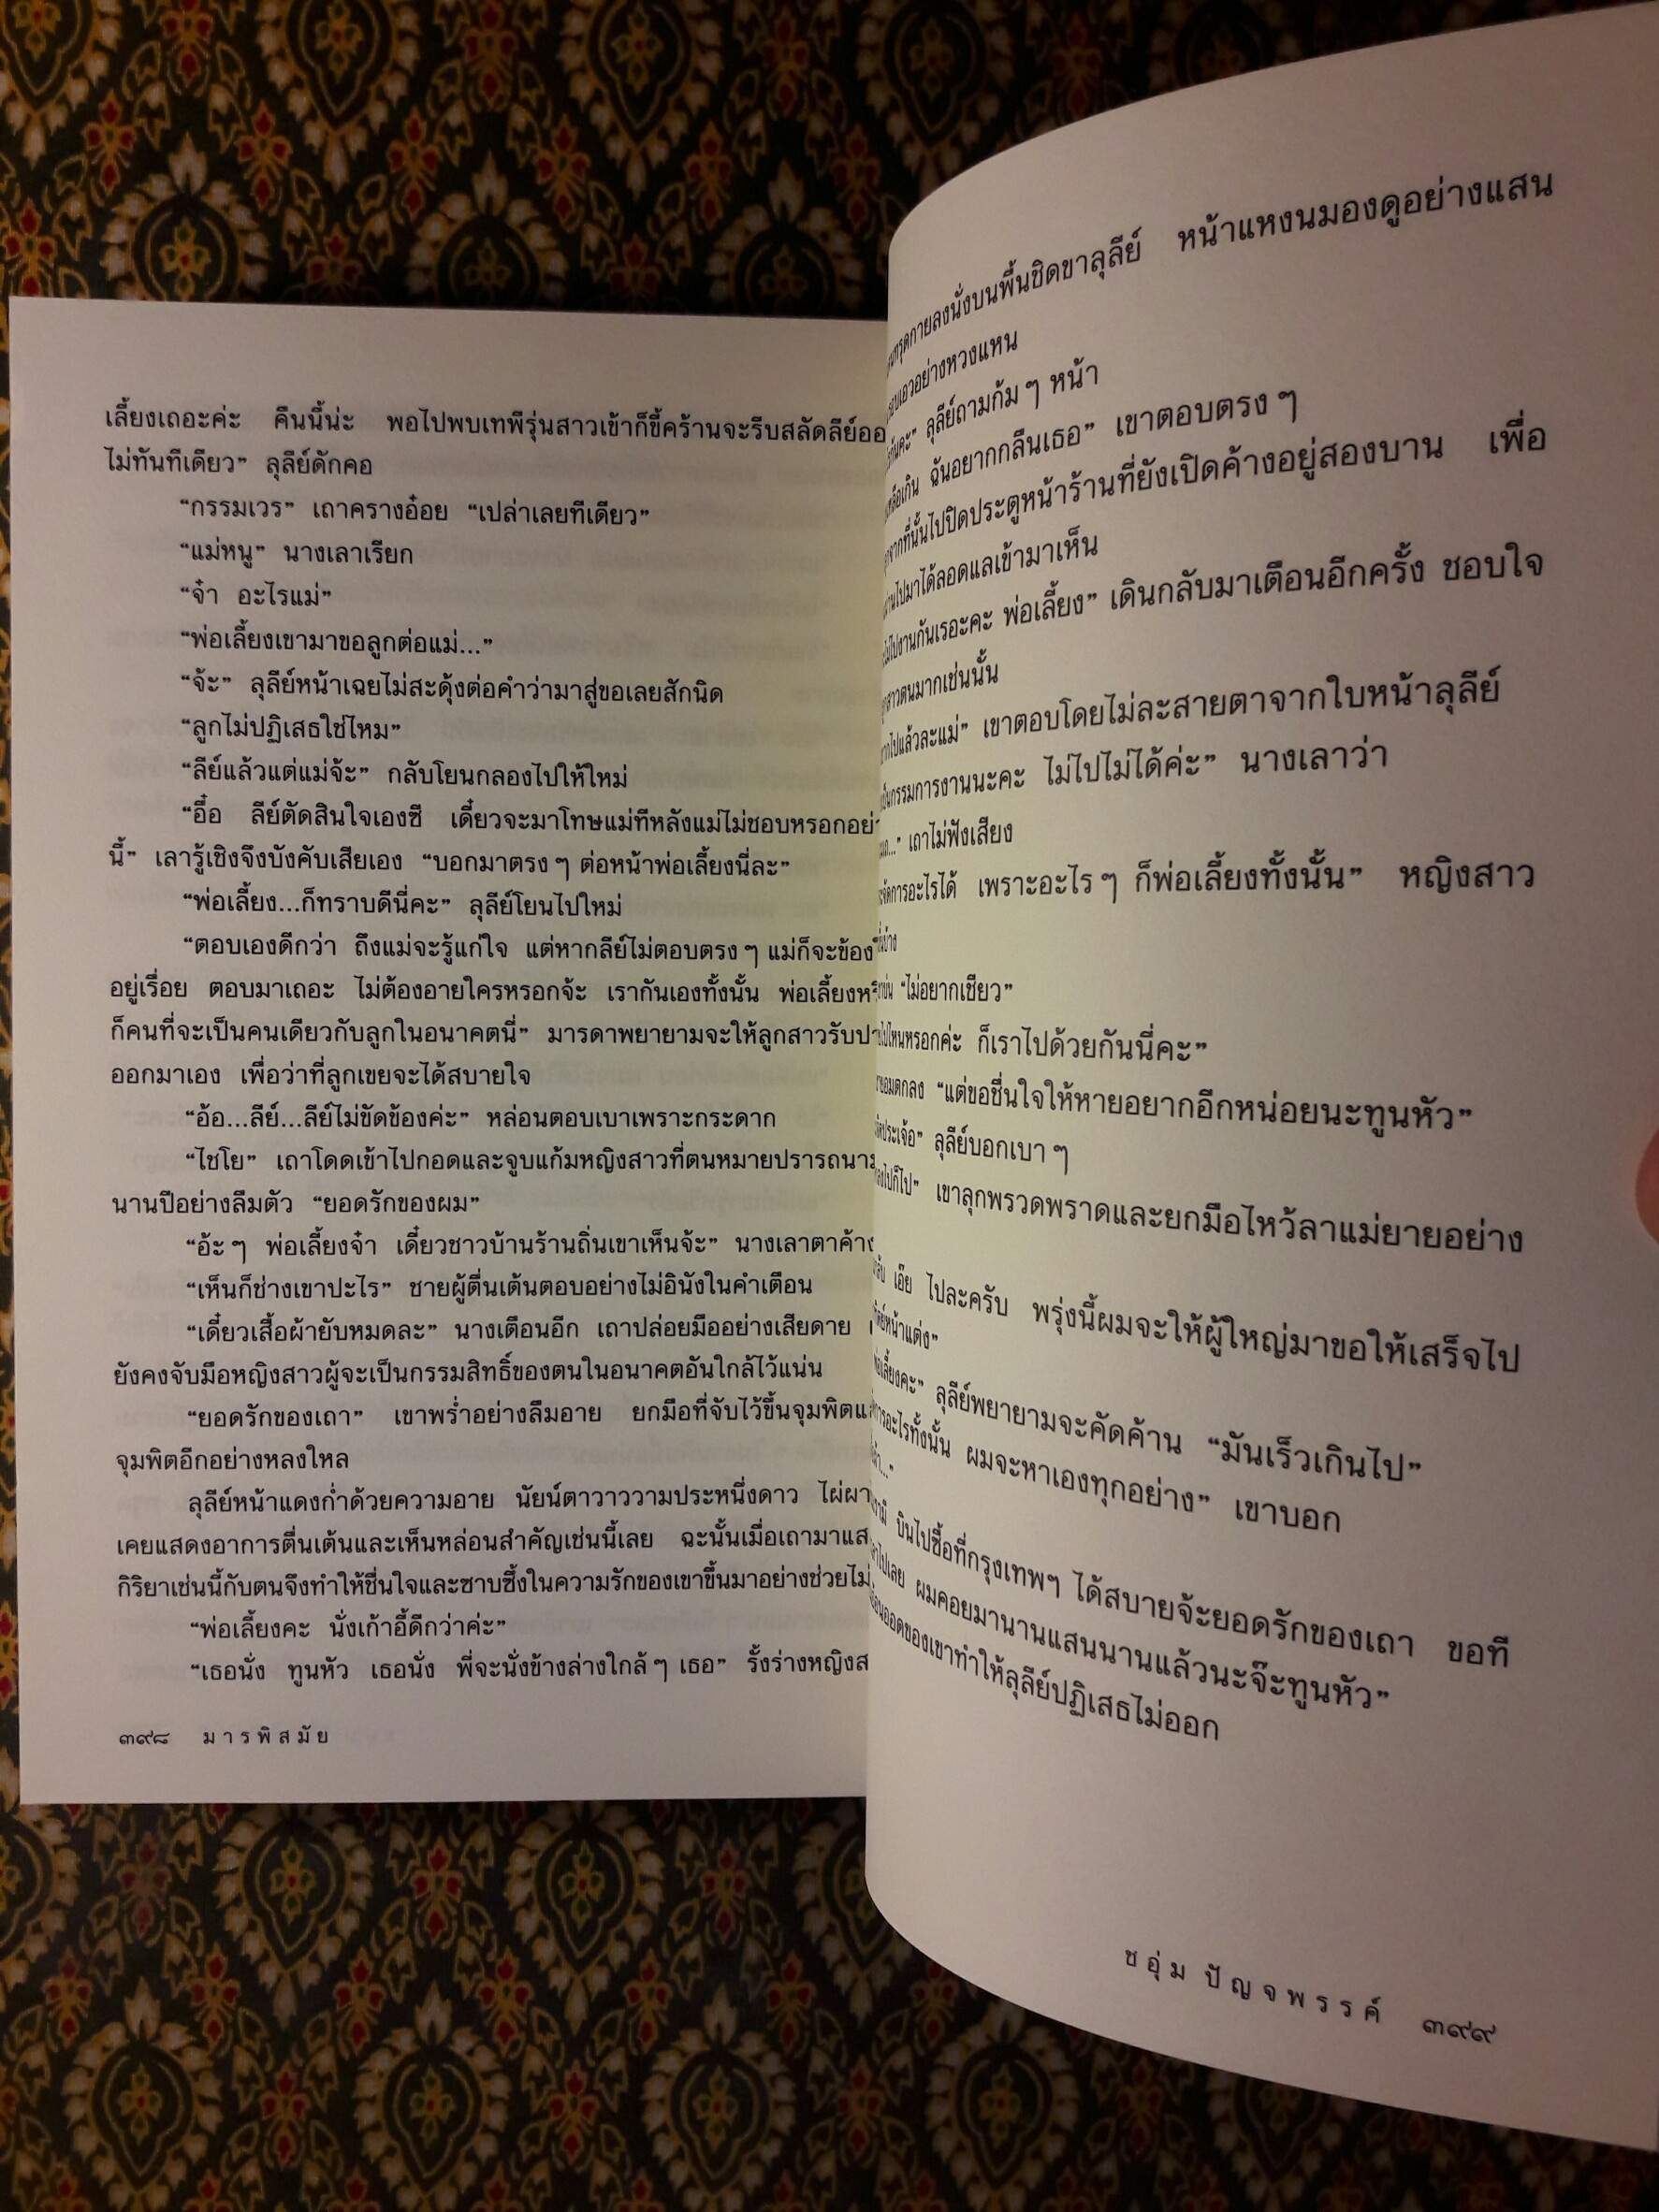 เลี้ยงเถอะค่ะ คืนนี้น่ะ พอไปพบเทพีรุ่นสาวเข้าก็ขี้คร้านจะรีบสลัดลีย์ออ
ไม่ทันทีเดียว” ลุลีย์ดักคอ
“กรรมเวร” เถาครางอ๋อย “เปล่าเลยทีเดียว”
“แม่หนู” นางเลาเรียก
“จ๋า อะไรแม่”
“พ่อเลี้ยงเขามาขอลูกต่อแม่...”
“จ้ะ” ลุลีย์หน้าเฉยไม่สะดุ้งต่อคำว่ามาสู่ขอเลยสักนิด
“ลูกไม่ปฏิเสธใช่ไหม”
“ลีย์แล้วแต่แม่จ้ะ” กลับโยนกลองไปให้ใหม่
“อื๋อ ลีย์ตัดสินใจเองซี เดี๋ยวจะมาโทษแม่ทีหลังแม่ไม่ชอบหรอกอย่า
นี้” เลารู้เชิงจึงบังคับเสียเอง “บอกมาตรง ๆ ต่อหน้าพ่อเลี้ยงนี่ละ”
“พ่อเลี้ยง...ก็ทราบดีนี่คะ” ลุลีย์โยนไปใหม่
“ตอบเองดีกว่า ถึงแม่จะรู้แก่ใจ แต่หากลีย์ไม่ตอบตรง ๆ แม่ก็จะข้อง
อยู่เรื่อย ตอบมาเถอะ ไม่ต้องอายใครหรอกจ้ะ เรากันเองทั้งนั้น พ่อเลี้ยง
ก็คนที่จะเป็นคนเดียวกับลูกในอนาคตนี่” มารดาพยายามจะให้ลูกสาวรับ
ออกมาเอง เพื่อว่าที่ลูกเขยจะได้สบายใจ
“อ้อ...ลีย์...ลีย์ไม่ขัดข้องค่ะ” หล่อนตอบเบาเพราะกระดาก
“ไชโย” เถาโดดเข้าไปกอดและจูบแก้มหญิงสาวที่ตนหมายปรารถนา
นานปีอย่างลืมตัว “ยอดรักของผม”
“อ้ะ ๆ พ่อเลี้ยงจ๋า เดี๋ยวชาวบ้านร้านถิ่นเขาเห็นจ้ะ” นางเลาตาค้าง
“เห็นก็ช่างเขาปะไร” ชายผู้ตื่นเต้นตอบอย่างไม่อินังในคำเตือน
“เดี๋ยวเสื้อผ้ายับหมดละ” นางเตือนอีก เถาปล่อยมืออย่างเสียดาย
ยังคงจับมือหญิงสาวผู้จะเป็นกรรมสิทธิ์ของตนในอนาคตอันใกล้ไว้แน่น
“ยอดรักของเถา” เขาพร่ำอย่างลืมอาย ยกมือที่จับไว้ขึ้นจุมพิต
จุมพิตอีกอย่างหลงใหล
ลุลีย์หน้าแดงก่ำด้วยความอาย นัยน์ตาวาววามประหนึ่งดาว ไผ่ผา
เคยแสดงอาการตื่นเต้นและเห็นหล่อนสำคัญเช่นนี้เลย ฉะนั้นเมื่อเถามาแส
กิริยาเช่นนี้กับตนจึงทำให้ชื่นใจและซาบซึ้งในความรักของเขาขึ้นมาอย่างช่วยไม่
“พ่อเลี้ยงคะ นั่งเก้าอี้ดีกว่าค่ะ”
“เธอนั่ง ทูนหัว เธอนั่ง พี่จะนั่งข้างล่างใกล้ ๆ เธอ” รั้งร่างหญิงส
๓๙๘ มารพิสมัย
ทรุดกายลงนั่งบนพื้นชิดขาลุลีย์ หน้าแหงนมองดูอย่างแสน
เอวอย่างหวงแหน
ลุลีย์ถามก้ม ๆ หน้า
ฉันอยากกลืนเธอ” เขาตอบตรง ๆ
จากที่นั้นไปปิดประตูหน้าร้านที่ยังเปิดค้างอยู่สองบาน เพื่อ
ไปมาได้ลอดแลเข้ามาเห็น
ไปงานกันเรอะคะ พ่อเลี้ยง” เดินกลับมาเตือนอีกครั้ง ชอบใจ
สาวตนมากเช่นนั้น
ไปแล้วละแม่” เขาตอบโดยไม่ละสายตาจากใบหน้าลุลีย์
เป็นกรรมการงานนะคะ ไม่ไปไม่ได้ค่ะ” นางเลาว่า
...” เถาไม่ฟังเสียง
จัดการอะไรได้ เพราะอะไร ๆ ก็พ่อเลี้ยงทั้งนั้น” หญิงสาว
“ไม่อยากเชียว”
ไปไหนหรอกค่ะ ก็เราไปด้วยกันนี่คะ”
ยอมตกลง “แต่ขอชื่นใจให้หายอยากอีกหน่อยนะทูนหัว”
ประเจ้อ” ลุลีย์บอกเบา ๆ
ไปก็ไป” เขาลุกพรวดพราดและยกมือไหว้ลาแม่ยายอย่าง
เอ๊ย ไปละครับ พรุ่งนี้ผมจะให้ผู้ใหญ่มาขอให้เสร็จไป
หน้าแต่ง”
พ่อเลี้ยงคะ” ลุลีย์พยายามจะคัดค้าน “มันเร็วเกินไป”
อะไรทั้งนั้น ผมจะหาเองทุกอย่าง” เขาบอก
บินไปซื้อที่กรุงเทพฯ ได้สบายจ้ะยอดรักของเถา ขอที
ไปเลย ผมคอยมานานแสนนานแล้วนะจ๊ะทูนหัว”
ออดของเขาทำให้ลุลีย์ปฏิเสธไม่ออก
ชอุ่ม ปัญจพรรค์ ๓๙๙